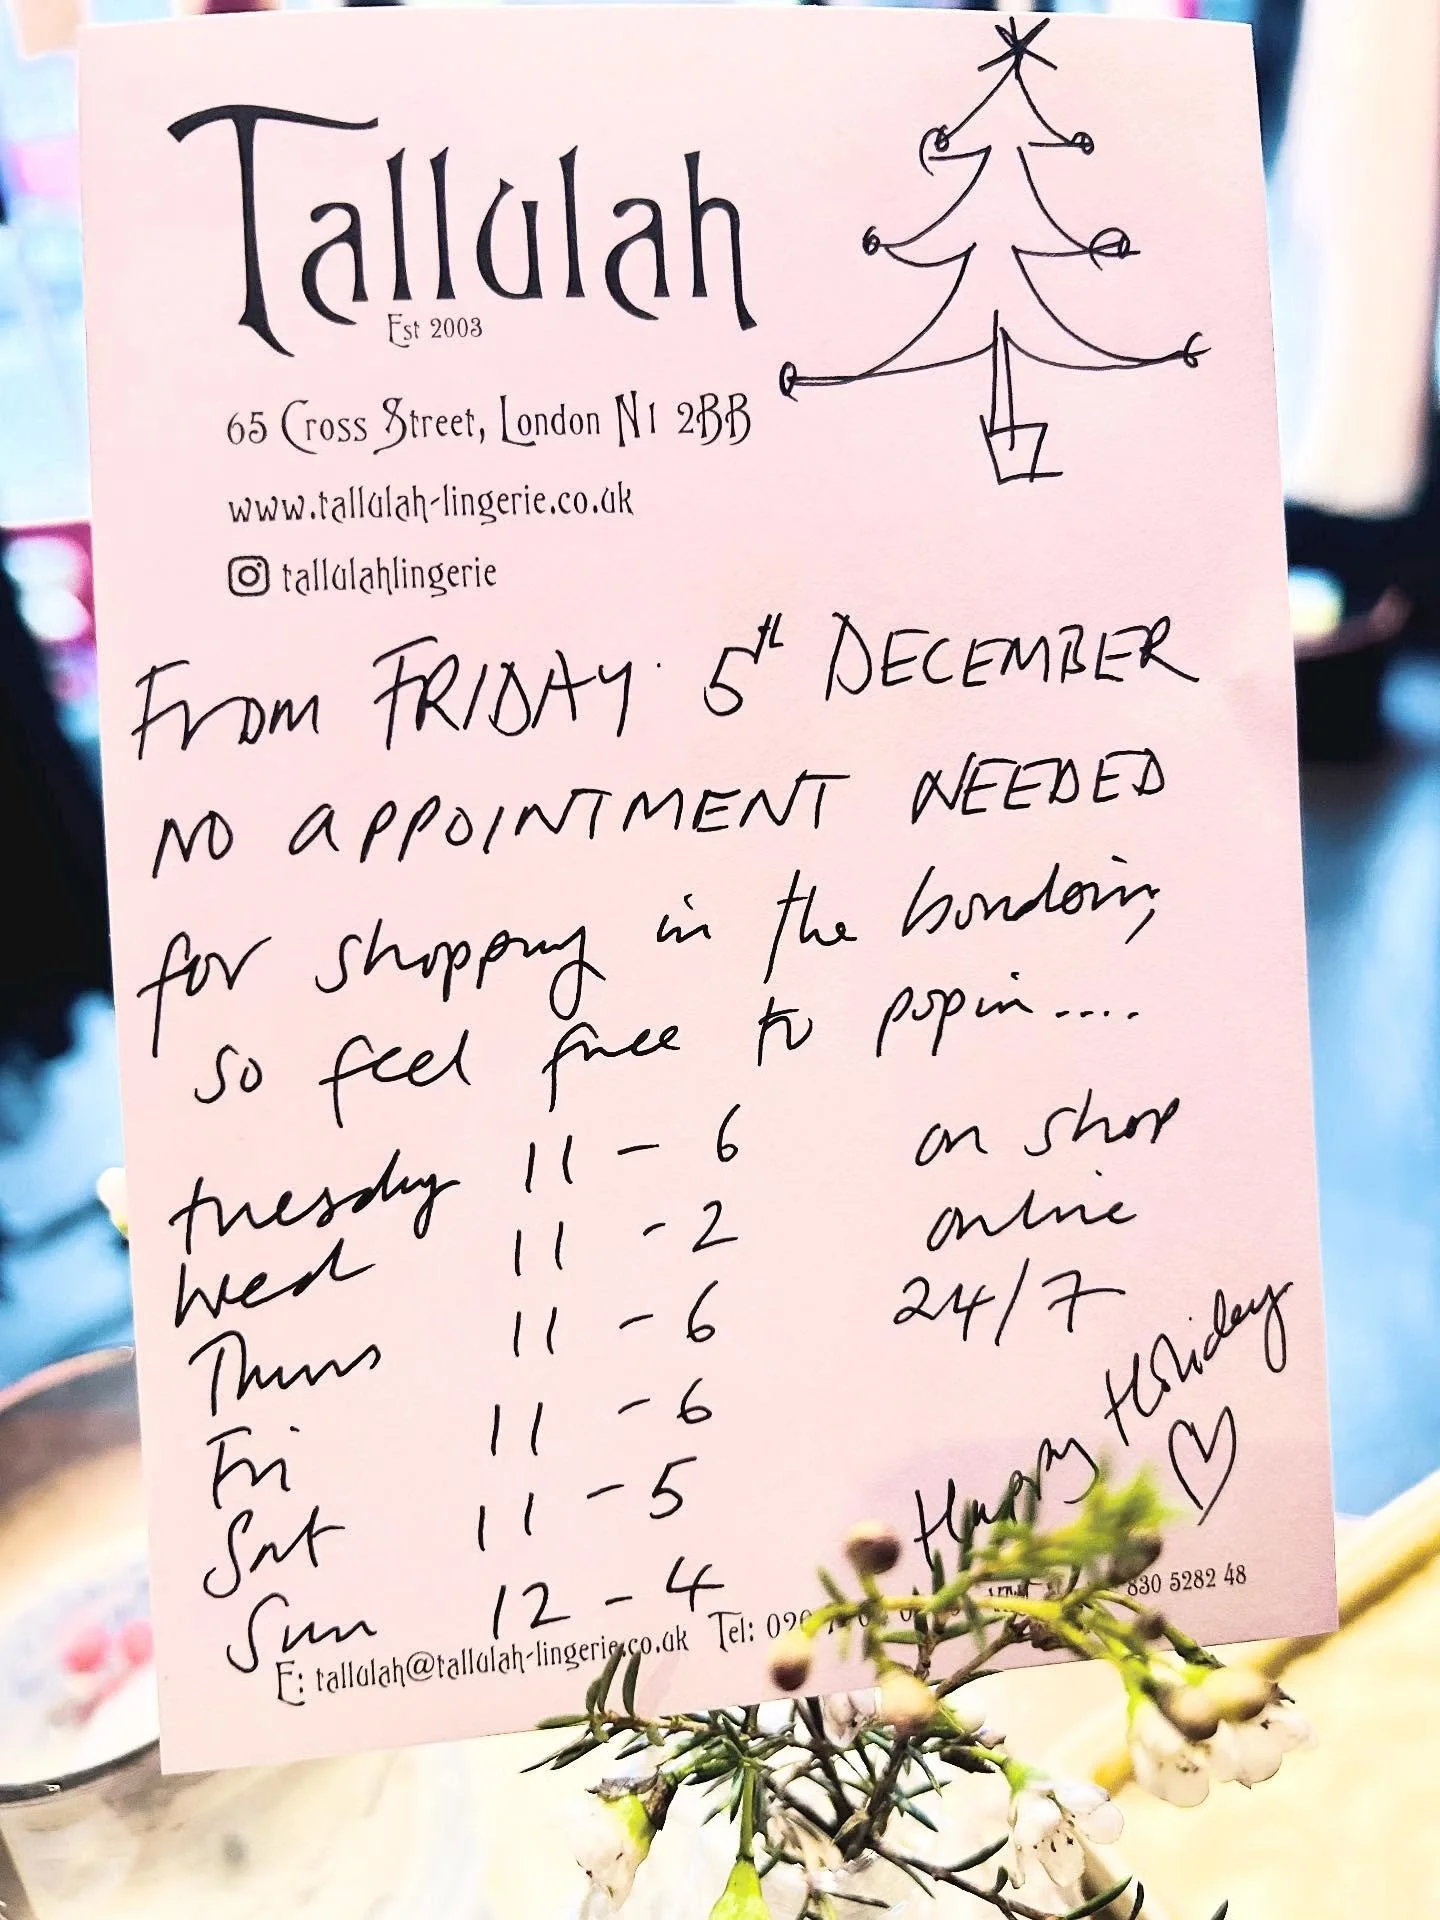 Tallulah
Est 2003
65 Cross Street, London N1 2BB
www.tallulah-lingerie.co.uk
tallulahlingerie
FROM FRIDAY 5th DECEMBER
NO APPOINTMENT NEEDED
for shopping in the boudoir,
so feel free to pop in....
tuesday 11 - 6
Wed 11 - 2
Thurs 11 - 6
Fri 11 - 6
Sat 11 - 5
Sun 12 - 4
or shop
online
24/7
Happy Holiday
E: tallulah@tallulah-lingerie.co.uk Tel: 020
830 5282 48